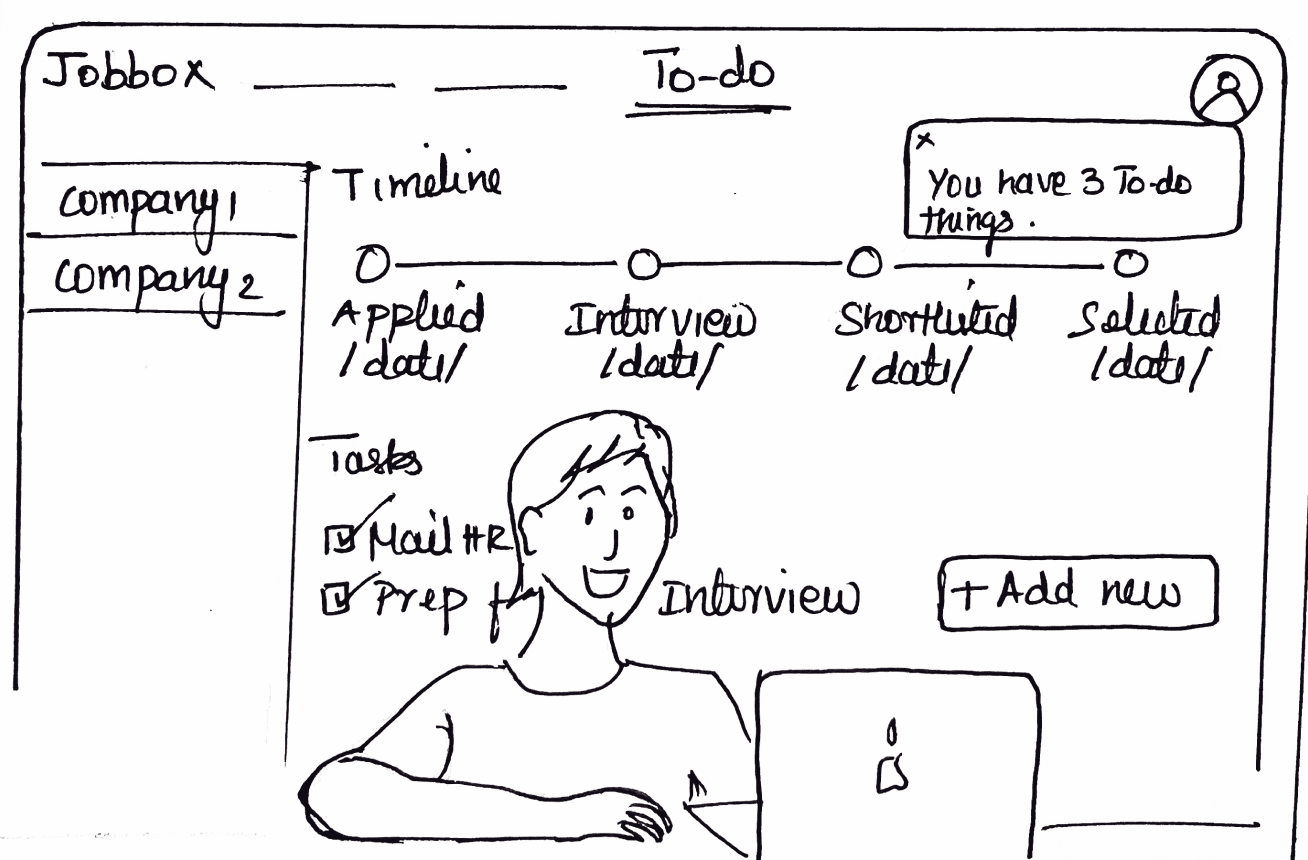 Jobbox To-do
x
You have 3 To-do
things.
Company 1
Company 2
Timeline
Applied Interview Shortlisted Selected
/date/ /date/ /date/ /date/
Tasks
Mail HR
Prep f Interview
+ Add new